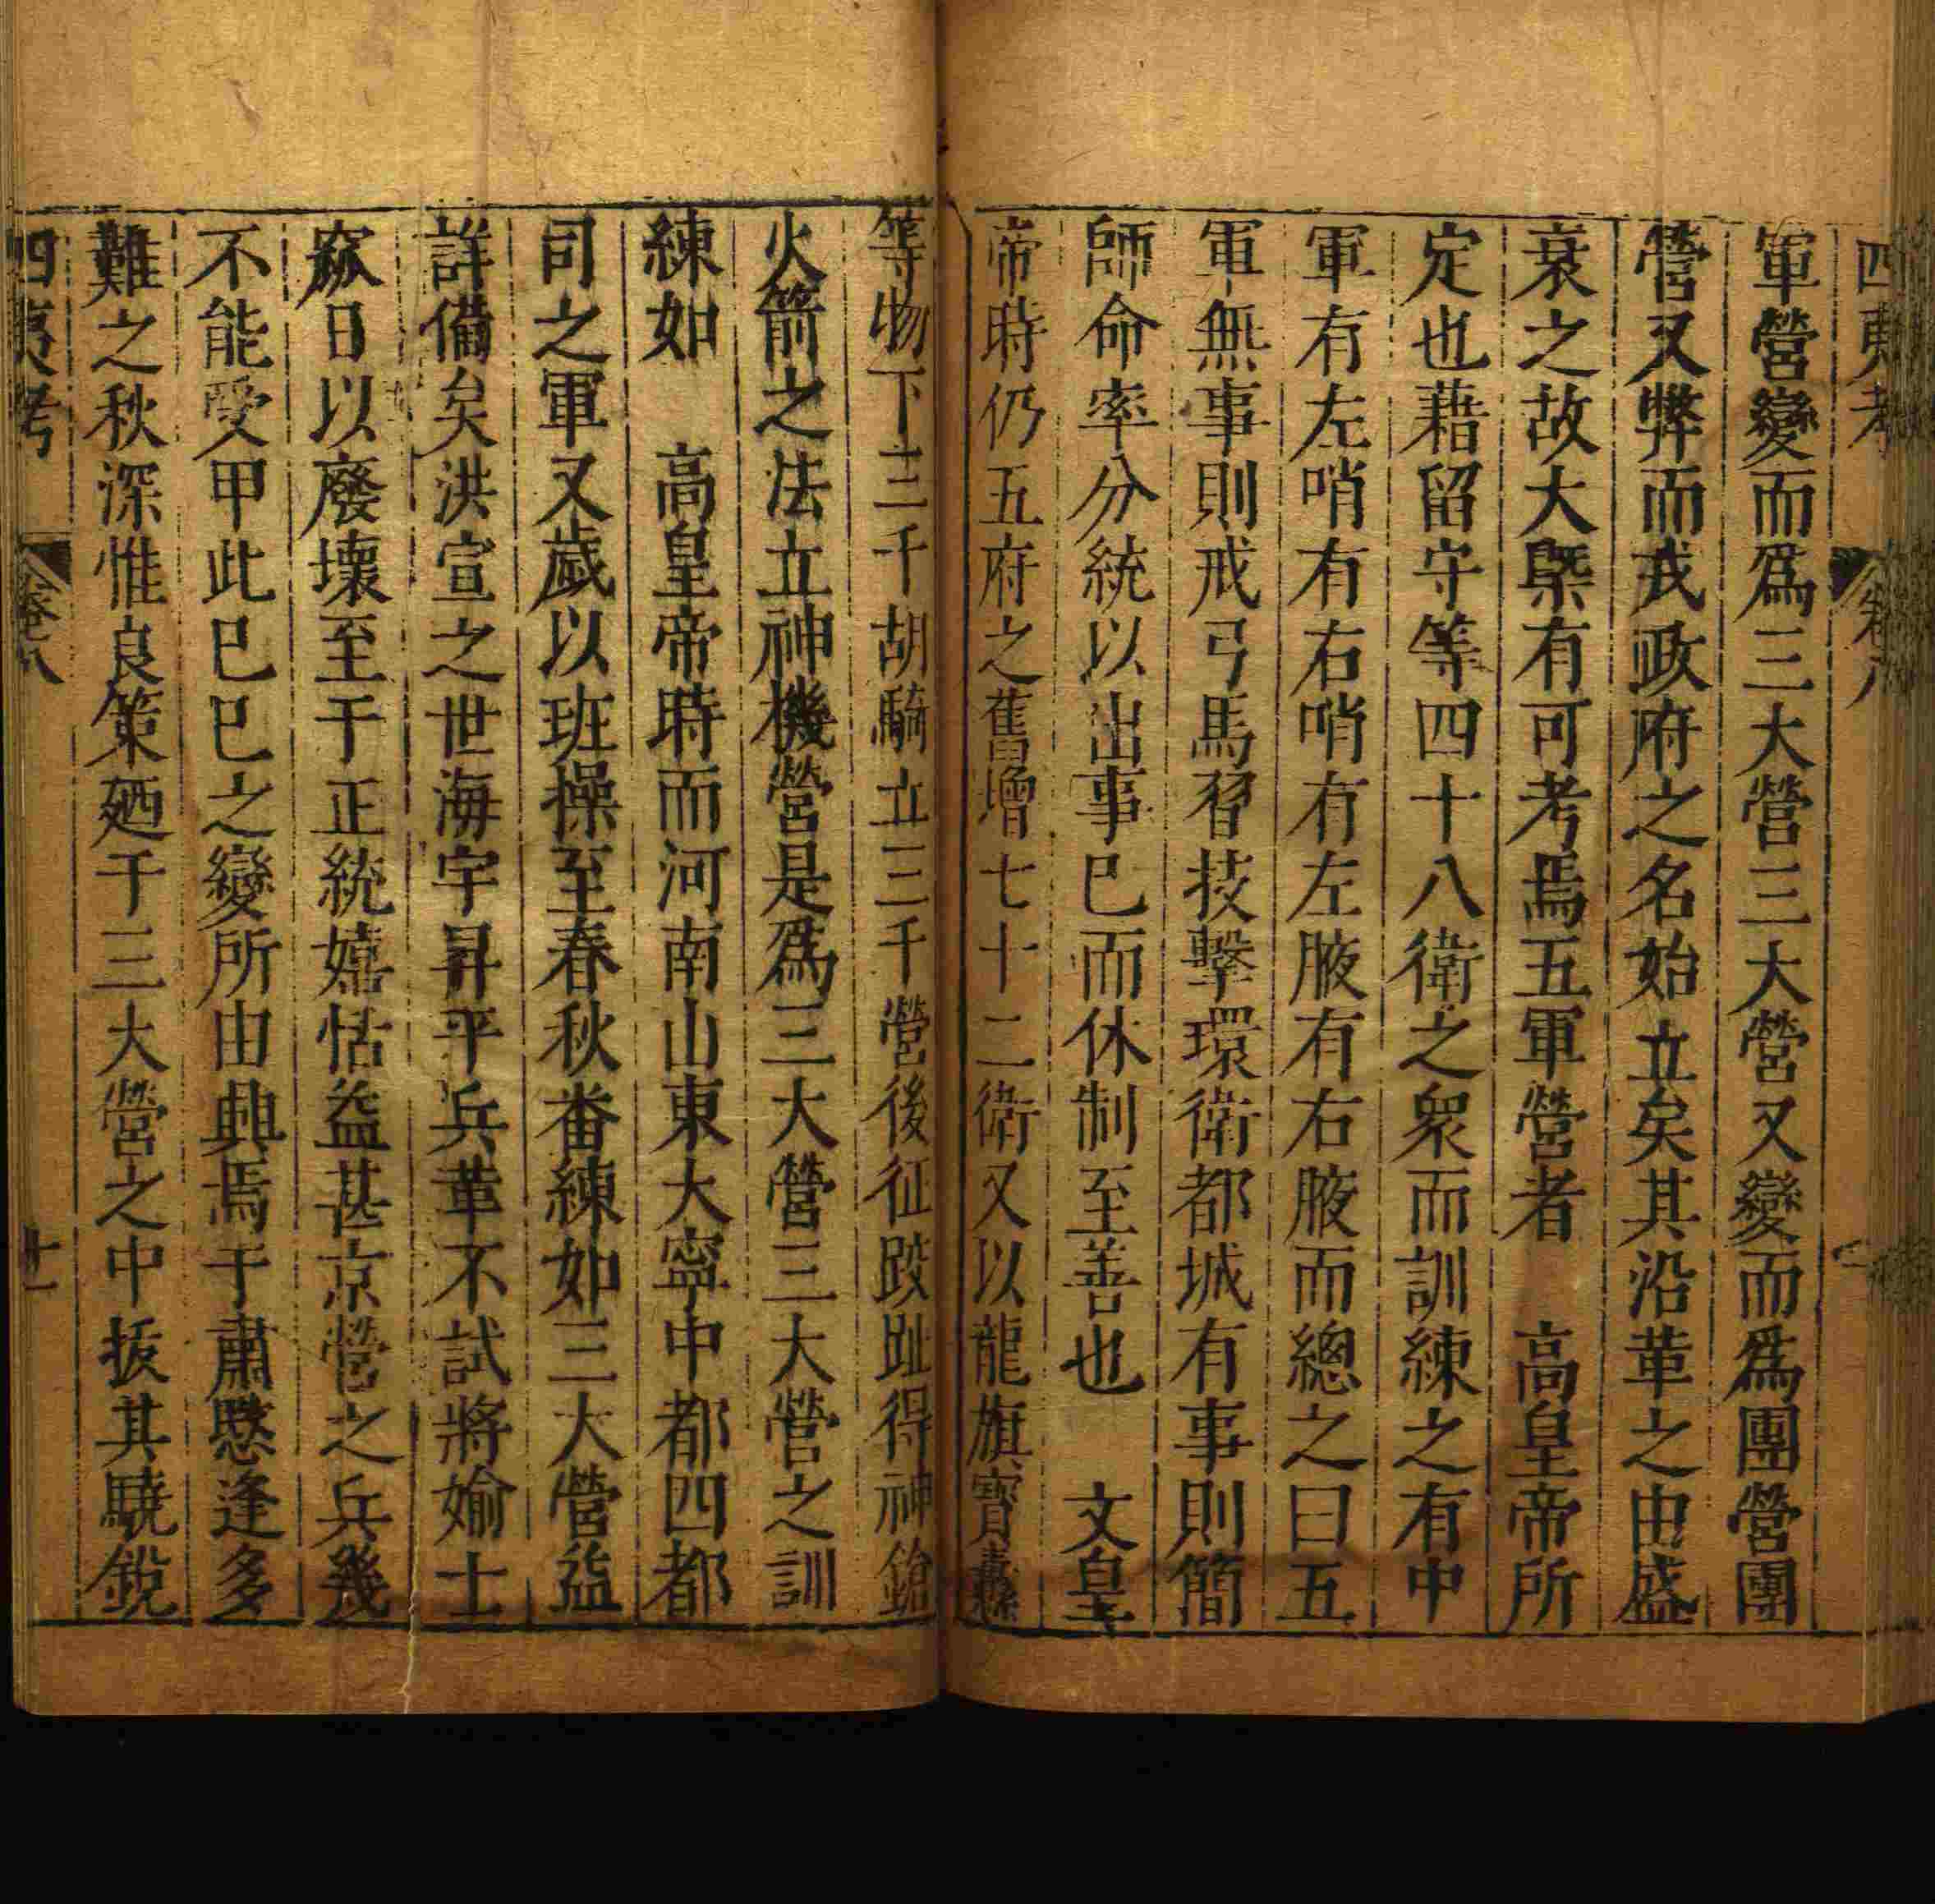 四夷考 卷八
軍營變而爲三大營三大營又變而爲團營團
營又弊而戎政府之名始立矣其沿革之由盛
衰之故大槩有可考焉五軍營者 高皇帝所
定也藉留守等四十八衛之衆而訓練之有中
軍有左哨有右哨有左腋有右腋而總之曰五
軍無事則戒弓馬習技擊環衛都城有事則簡
師命率分統以出事巳而休制至善也 文皇
帝時仍五府之舊增七十二衛又以龍旗寶纛
等物下三千胡騎立三千營後征跤趾得神鎗
火箭之法立神機營是爲三大營三大營之訓
練如 高皇帝時而河南山東大寧中都四都
司之軍又歲以班操至春秋番練如三大營益
詳備矣洪宣之世海宇昇平兵革不試將媮士
窳日以廢壞至于正統嬉恬益甚京營之兵幾
不能受甲此巳巳之變所由興焉于肅愍逢多
難之秋深惟良策廼于三大營之中拔其驍銳
四夷考 卷八 十一